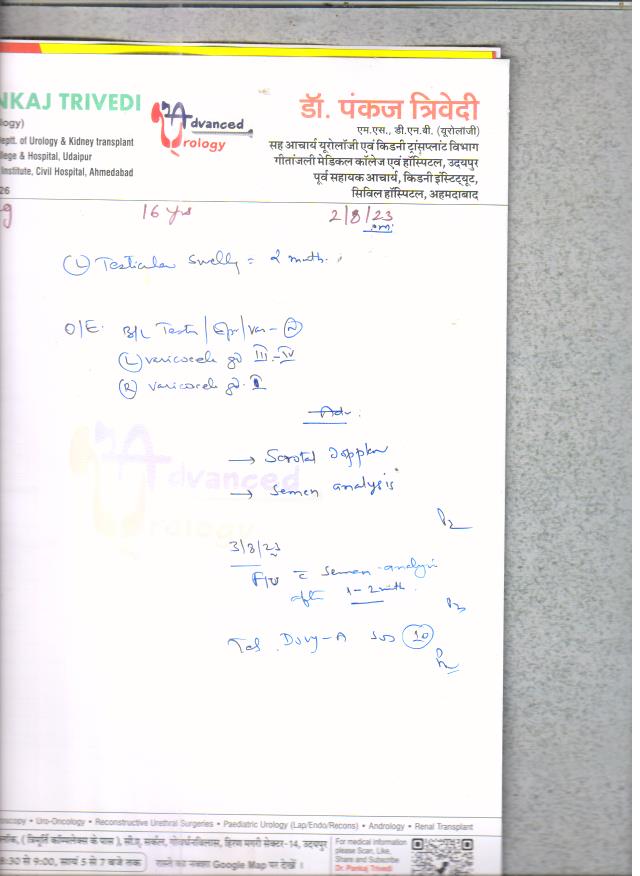 NKAJ TRIVEDI
logy)
Deptt. of Urology & Kidney transplant
lege & Hospital, Udaipur
Institute, Civil Hospital, Ahmedabad
26
Advanced
Urology
डॉ. पंकज त्रिवेदी
एम.एस., डी.एन.बी. (यूरोलॉजी)
सह आचार्य यूरोलॉजी एवं किडनी ट्रांसप्लांट विभाग
गीतांजली मेडिकल कॉलेज एवं हॉस्पिटल, उदयपुर
पूर्व सहायक आचार्य, किडनी इंस्टिट्यूट,
सिविल हॉस्पिटल, अहमदाबाद
g 16 yrs 2/8/23
(L) Testicular swelly = 2 month.
O/E: B/L Testis / Epi / vas - (N)
(L) varicocele gd III-IV
(R) varicocele gd. I
Adv.
→ Scrotal Doppler
→ Semen analysis
Advanced
Urology
3/8/23
F/U c semen analysis
after 1-2 month.
Tab. Duvy-A sos (10)
oscopy • Uro-Oncology • Reconstructive Urethral Surgeries • Paediatric Urology (Lap/Endo/Recons) • Andrology • Renal Transplant
लॉक, ( त्रिमूर्ति कॉम्पलेक्स के पास ), सी.ए. सर्कल, गोवर्धनविलास, हिरण मगरी सेक्टर-14, उदयपुर
8:30 से 9:00, सायं 5 से 7 बजे तक
रास्ते का नक्शा Google Map पर देखें ।
For medical information
please Scan, Like,
Share and Subscribe
Dr. Pankaj Trivedi